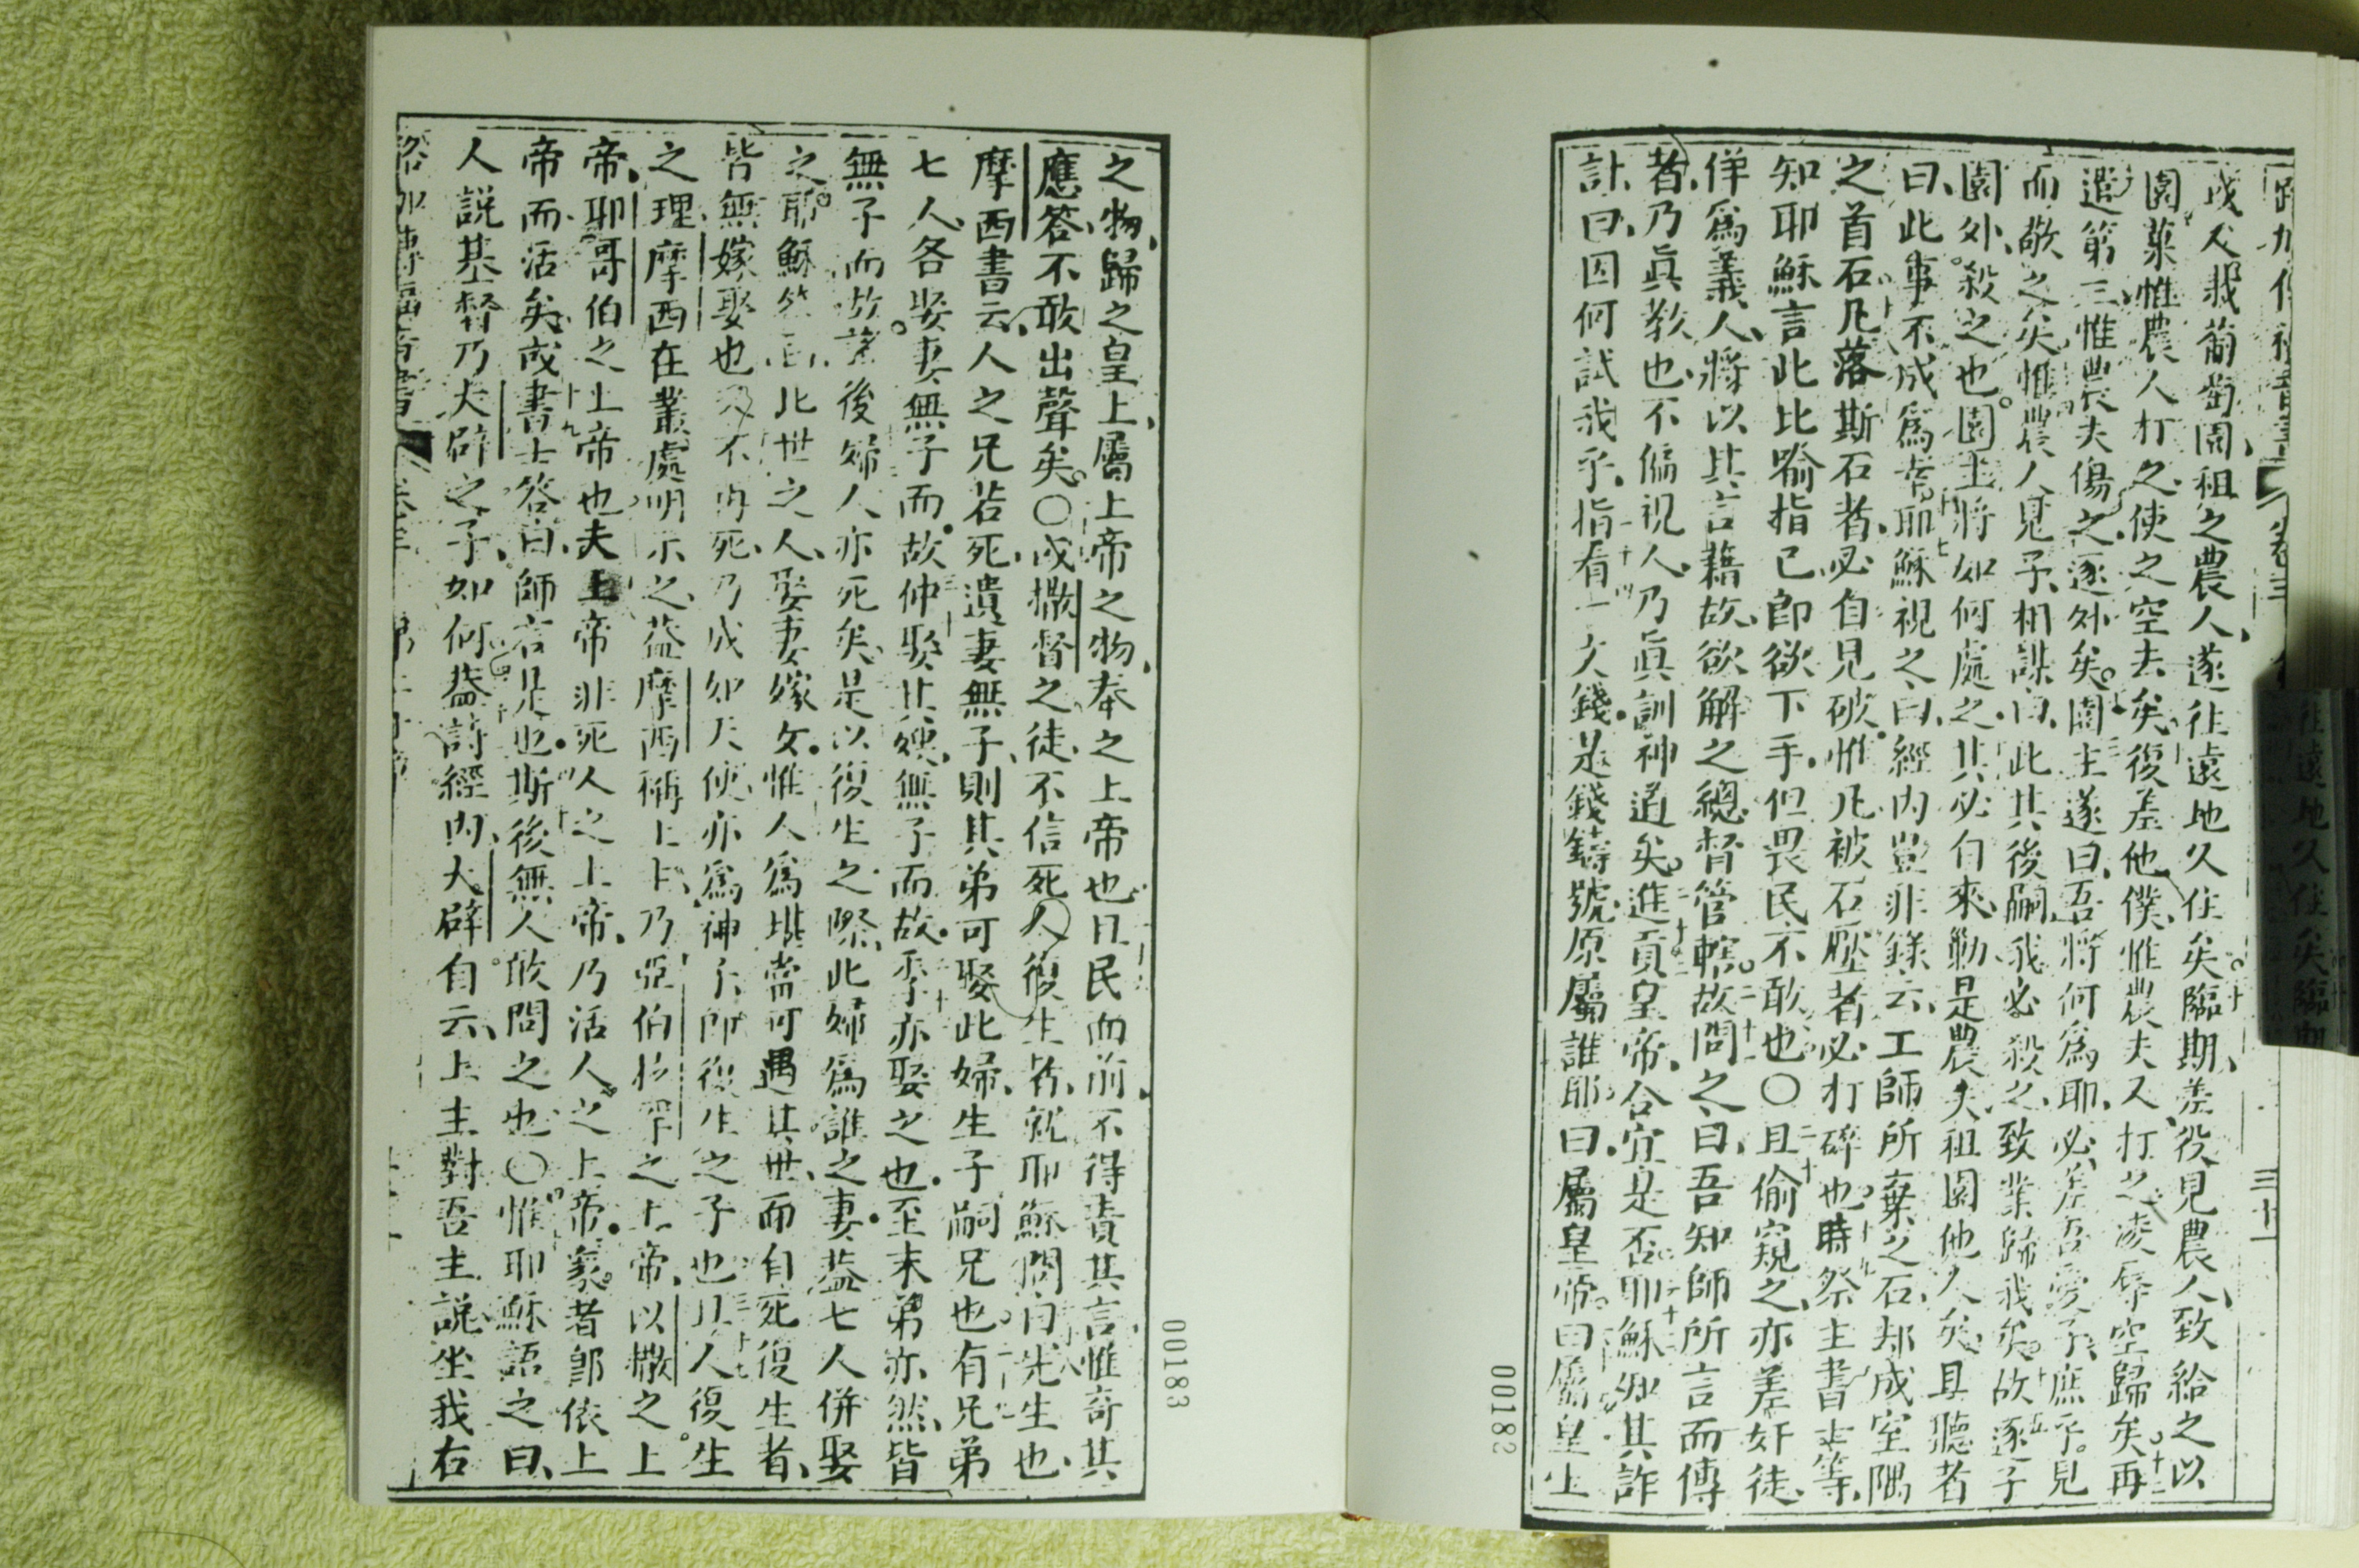 路加傳福音書
卷三
三十一
或人栽葡萄園租之農人遂往遠地久住矣臨期差役見農人致給之以
園菓惟農人打之使之空去矣復差他僕惟農夫又打之凌辱空歸矣再
遣第三惟農夫傷之逐外矣園主遂曰吾將何爲耶必差吾愛子庶乎見
而敬之矣惟農人見子相謀曰此其後嗣我必殺之致業歸我矣故逐子
園外殺之也園主將如何處之其必自來勦是農夫租園他人矣且聽者
曰此事不成爲幸耶穌視之曰經內豈非錄云工師所棄之石却成室隅
之首石凡落斯石者必自見破惟凡被石壓者必打碎也時祭主書士等
知耶穌言此比喻指己卽欲下手但畏民不敢也〇且偷窺之亦差奸徒
佯爲義人將以其言藉故欲解之總督管轄故問之曰吾知師所言而傳
者乃眞教也不偏視人乃眞訓神道矣進貢皇帝合宜是否耶穌知其詐
計曰因何試我乎指看一文錢是錢鑄號原屬誰耶曰屬皇帝曰屬皇上
00182
之物歸之皇上屬上帝之物奉之上帝也且民面前不得責其言惟奇其
應答不敢出聲矣〇或撒督之徒不信死人復生皆就耶穌問曰先生也
摩西書云人之兄若死遺妻無子則其弟可娶此婦生子嗣兄也有兄弟
七人各娶妻無子而故仲娶其嫂無子而故季亦娶之也至末弟亦然皆
無子而故後婦人亦死矣是以復生之際此婦爲誰之妻蓋七人併娶
之耶穌答曰此世之人娶妻嫁女惟人爲堪當可遇其世而自死復生者
皆無嫁娶也不再死乃成如天使亦爲神子卽復生之子也且人復生
之理摩西在叢處明示之蓋摩西稱上主乃亞伯拉罕之上帝以撒之上
帝耶哥伯之上帝也夫上帝非死人之上帝乃活人之上帝象者卽依上
帝而活矣或書士答曰師言是也斯後無人敢問之也〇惟耶穌語之曰
人說基督乃大辟之子如何蓋詩經內大辟自云上主對吾主說坐我右
路加傳福音書
00183
往遠地久住矣臨期